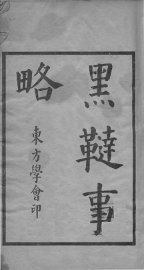 黑韃事
略
東方學會印